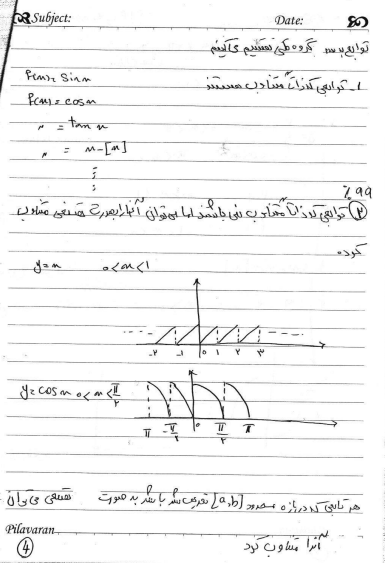 Subject:
Date:
توابع به سه گروه کلی تقسیم می‌کنیم
۱- توابعی که ذاتاً متناوب هستند
f(x)= sin x
f(x)= cos x
〃 = tan x
〃 = x-[x]
⋮
٪ 99
② توابعی که ذاتاً متناوب نمی باشند اما می توان آنها را بصورت متناوب
کرد.
y=x 0<x<1
-۲ -۱ 0 ۱ ۲ ۳
y=cos x 0<x<π/۲
π -π/۲ 0 π/۲ π
هر تابعی که در بازه محدود [a,b] تعریف شده باشد به صورت می توان
آنرا متناوب کرد
Pilavaran
④